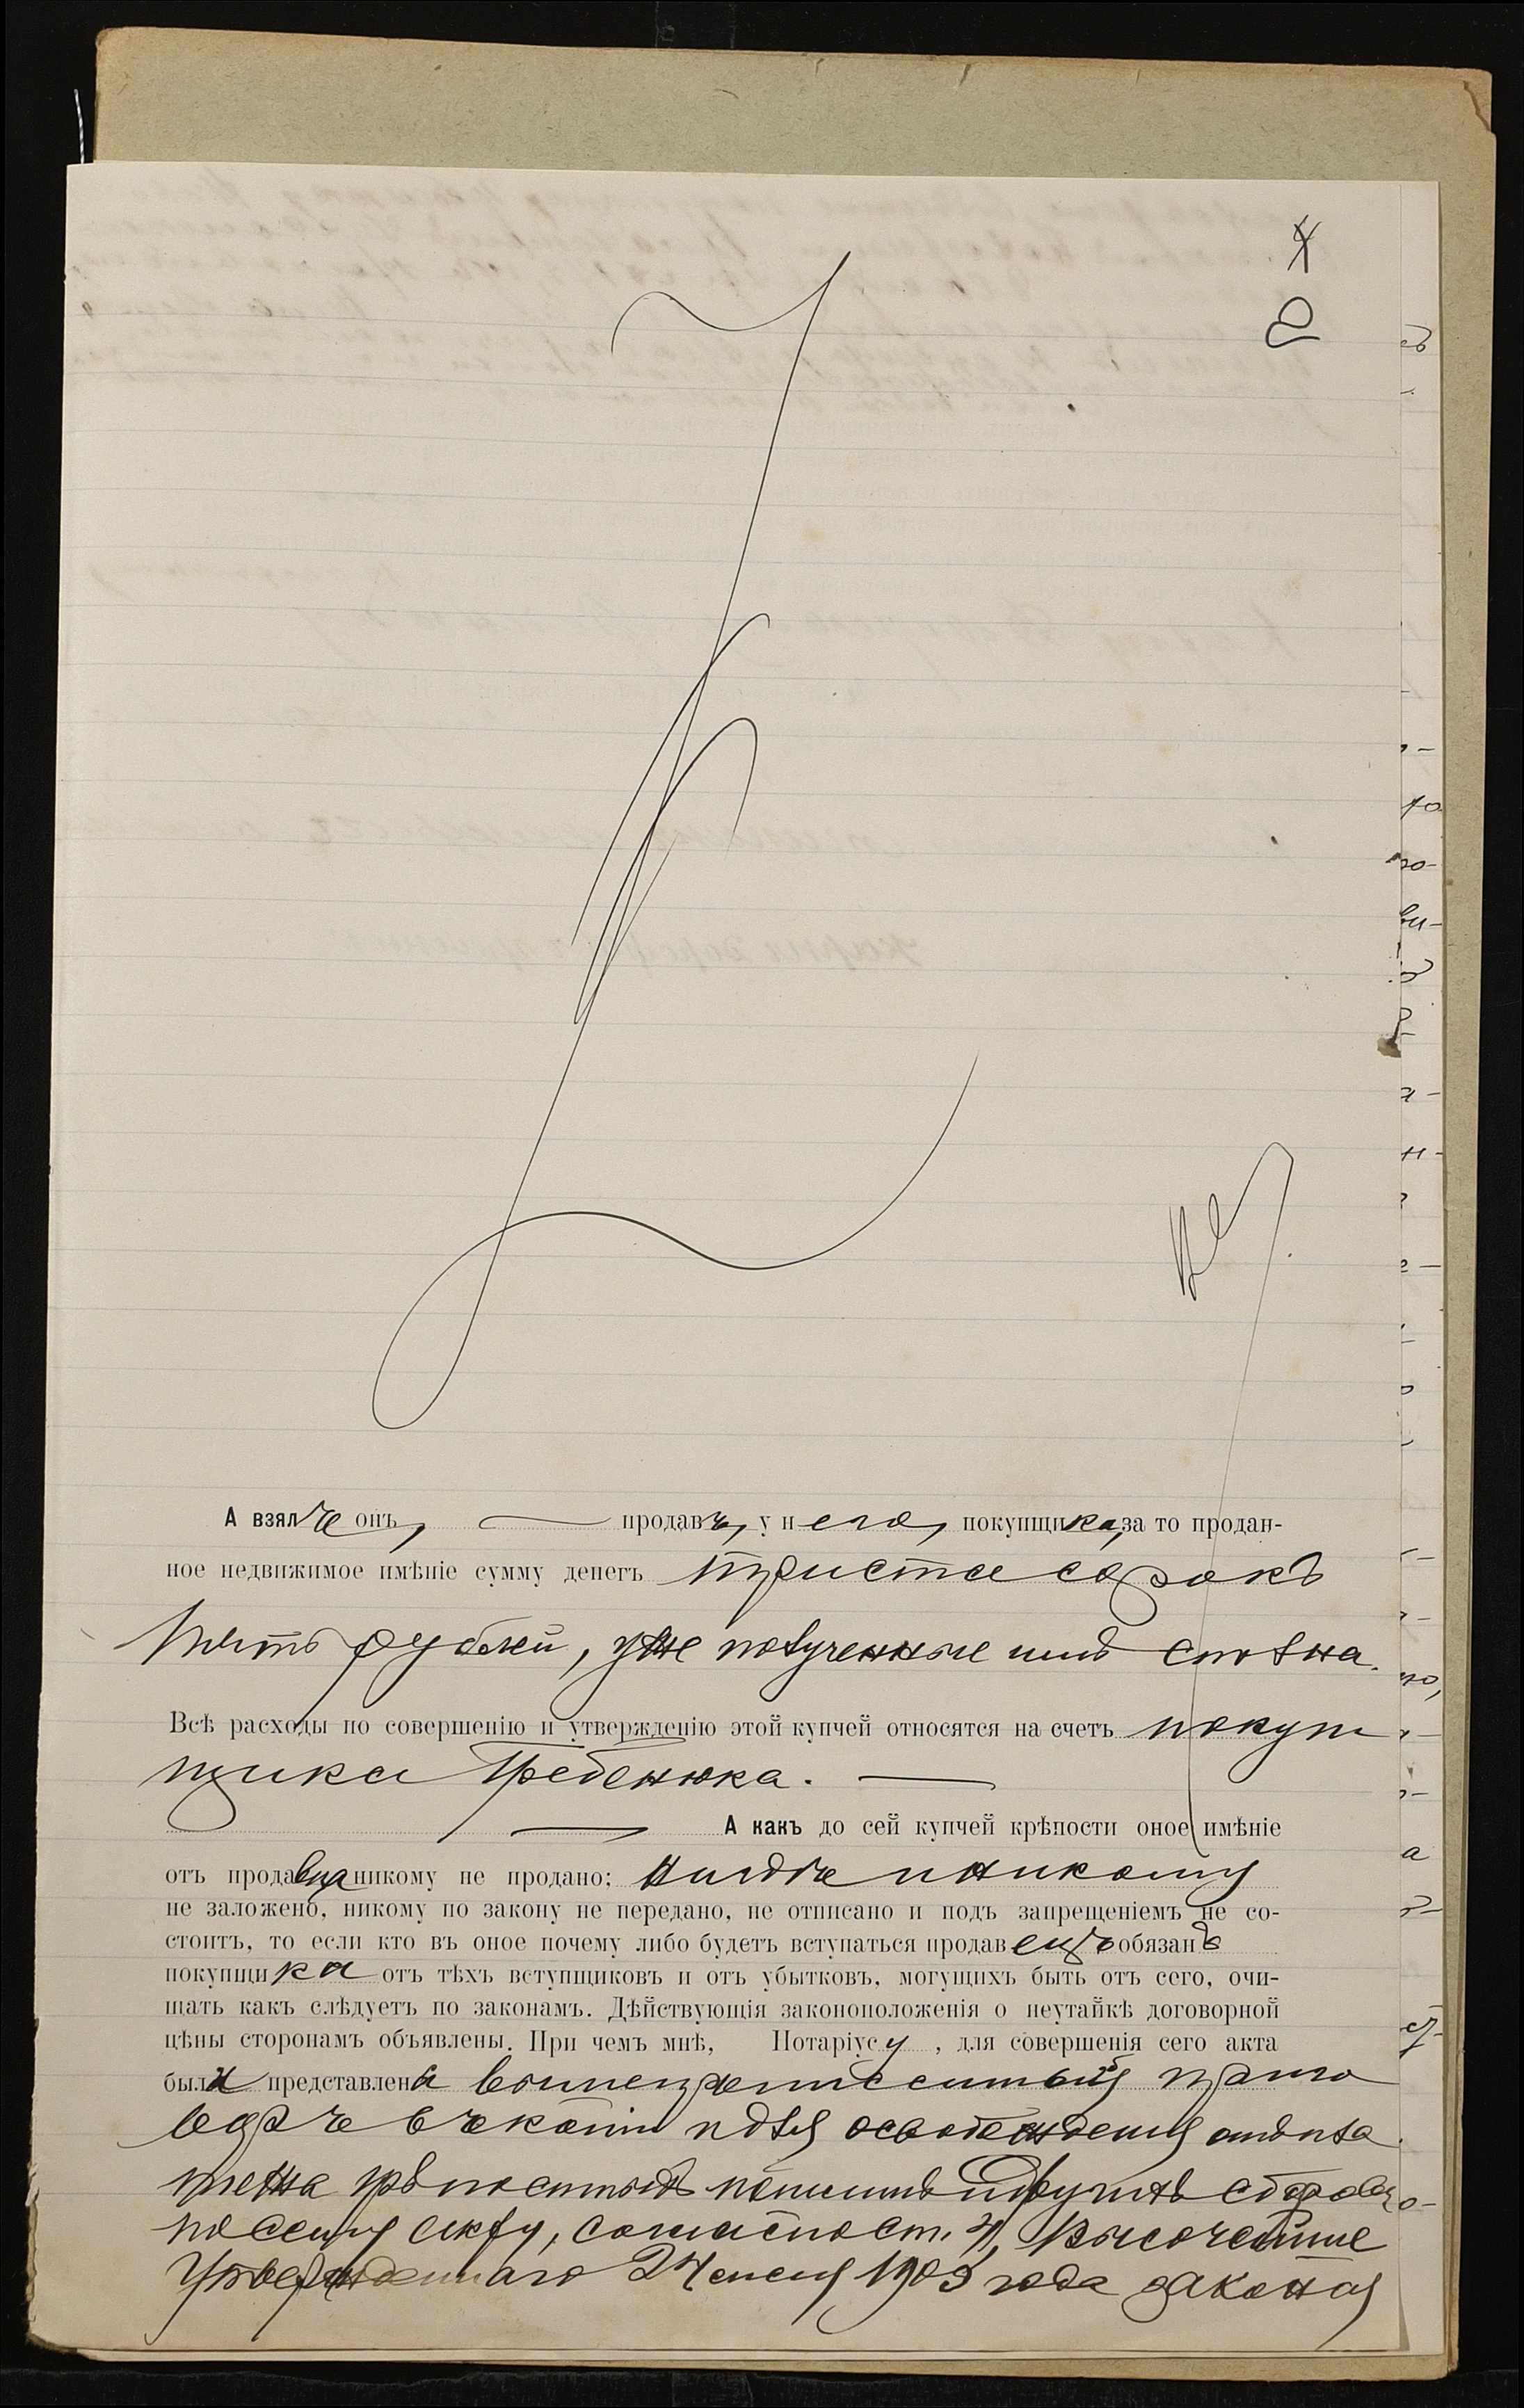 8
А взялъ онъ, продавецъ, у него, покупщика, за то продан-
ное недвижимое имѣніе сумму денегъ триста сорокъ
пять рублей, уже полученные имъ сполна.
Всѣ расходы по совершенію и утвержденію этой купчей относятся на счетъ покуп
щика Гребенюка.
А какъ до сей купчей крѣпости оное имѣніе
отъ продавца никому не продано; нигдѣ и никому
не заложено, никому по закону не передано, не отписано и подъ запрещеніемъ не со-
стоитъ, то если кто въ оное почему либо будетъ вступаться продавецъ обязанъ
покупщика отъ тѣхъ вступщиковъ и отъ убытковъ, могущихъ быть отъ сего, очи-
щать какъ слѣдуетъ по законамъ. Дѣйствующія законоположенія о неутайкѣ договорной
цѣны сторонамъ объявлены. При чемъ мнѣ, Нотаріусу, для совершенія сего акта
были представлены вышепрописанный
для освобожденія отъ пла
тежа крѣпостныхъ пошлинъ и другихъ сборовъ
по сему акту, согласно ст. 4, Высочайше
Утвержденнаго 1903 года закона